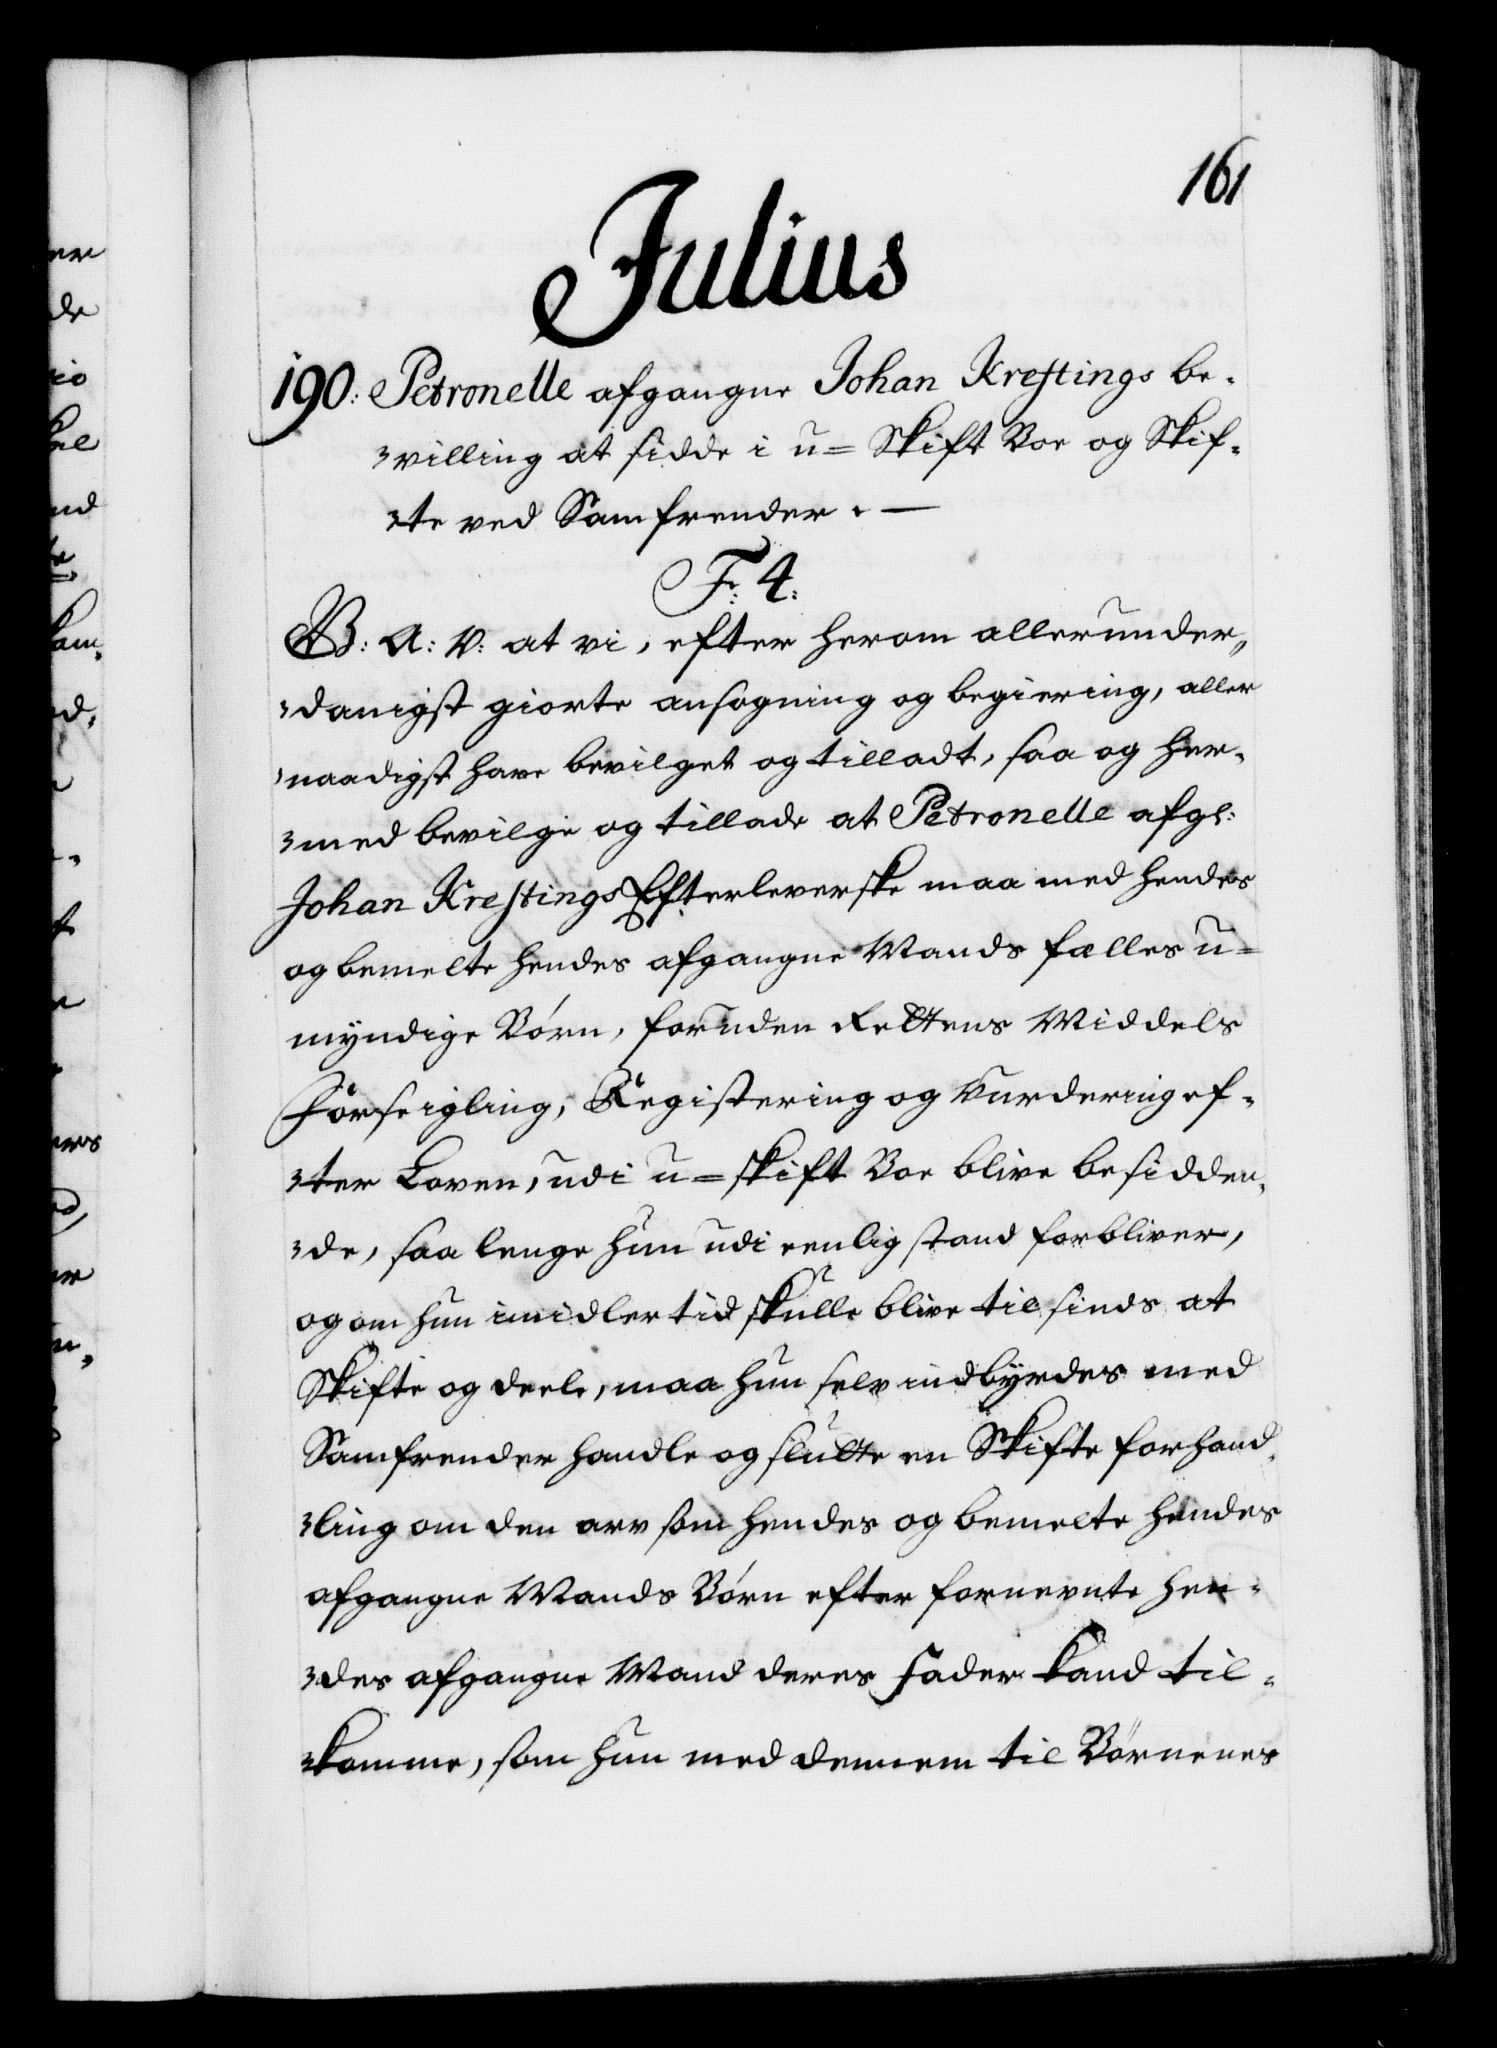 161
Julius
190: Petronelle afgangne Johan Krestings be-
-villing at sidde i u= Skift Boe og Skif-
-te ved Samfrender. —
F: 4:
G: A: V: at vi, efter herom allerunder-
-danigst giorte ansøgning og begiering, aller
-naadigst have bevilget og tilladt, saa og her-
-med bevilge og tillade at Petronelle afg:
Johan Krestings Efterleverske maa med hendes
og bemelte hendes afgangne Mands fælles u=
myndige Børn, foruden Rettens Middels
Forseigling, Registering og Vurdering ef-
-ter Loven, udi u=skift Boe blive besidden-
-de, saa lenge hun udi eenlig stand forbliver,
og om hun imidlertid skulle blive til sinds at
Skifte og deele, maa hun selv indbyrdes med
Samfrender handle og slutte en Skifte forhand-
-ling om den arv som hendes og bemelte hendes
afgangne Mands Børn efter fornevnte hen-
-des afgangne Mand deres Fader kand til-
-komme, som hun med dennem til Børnenes